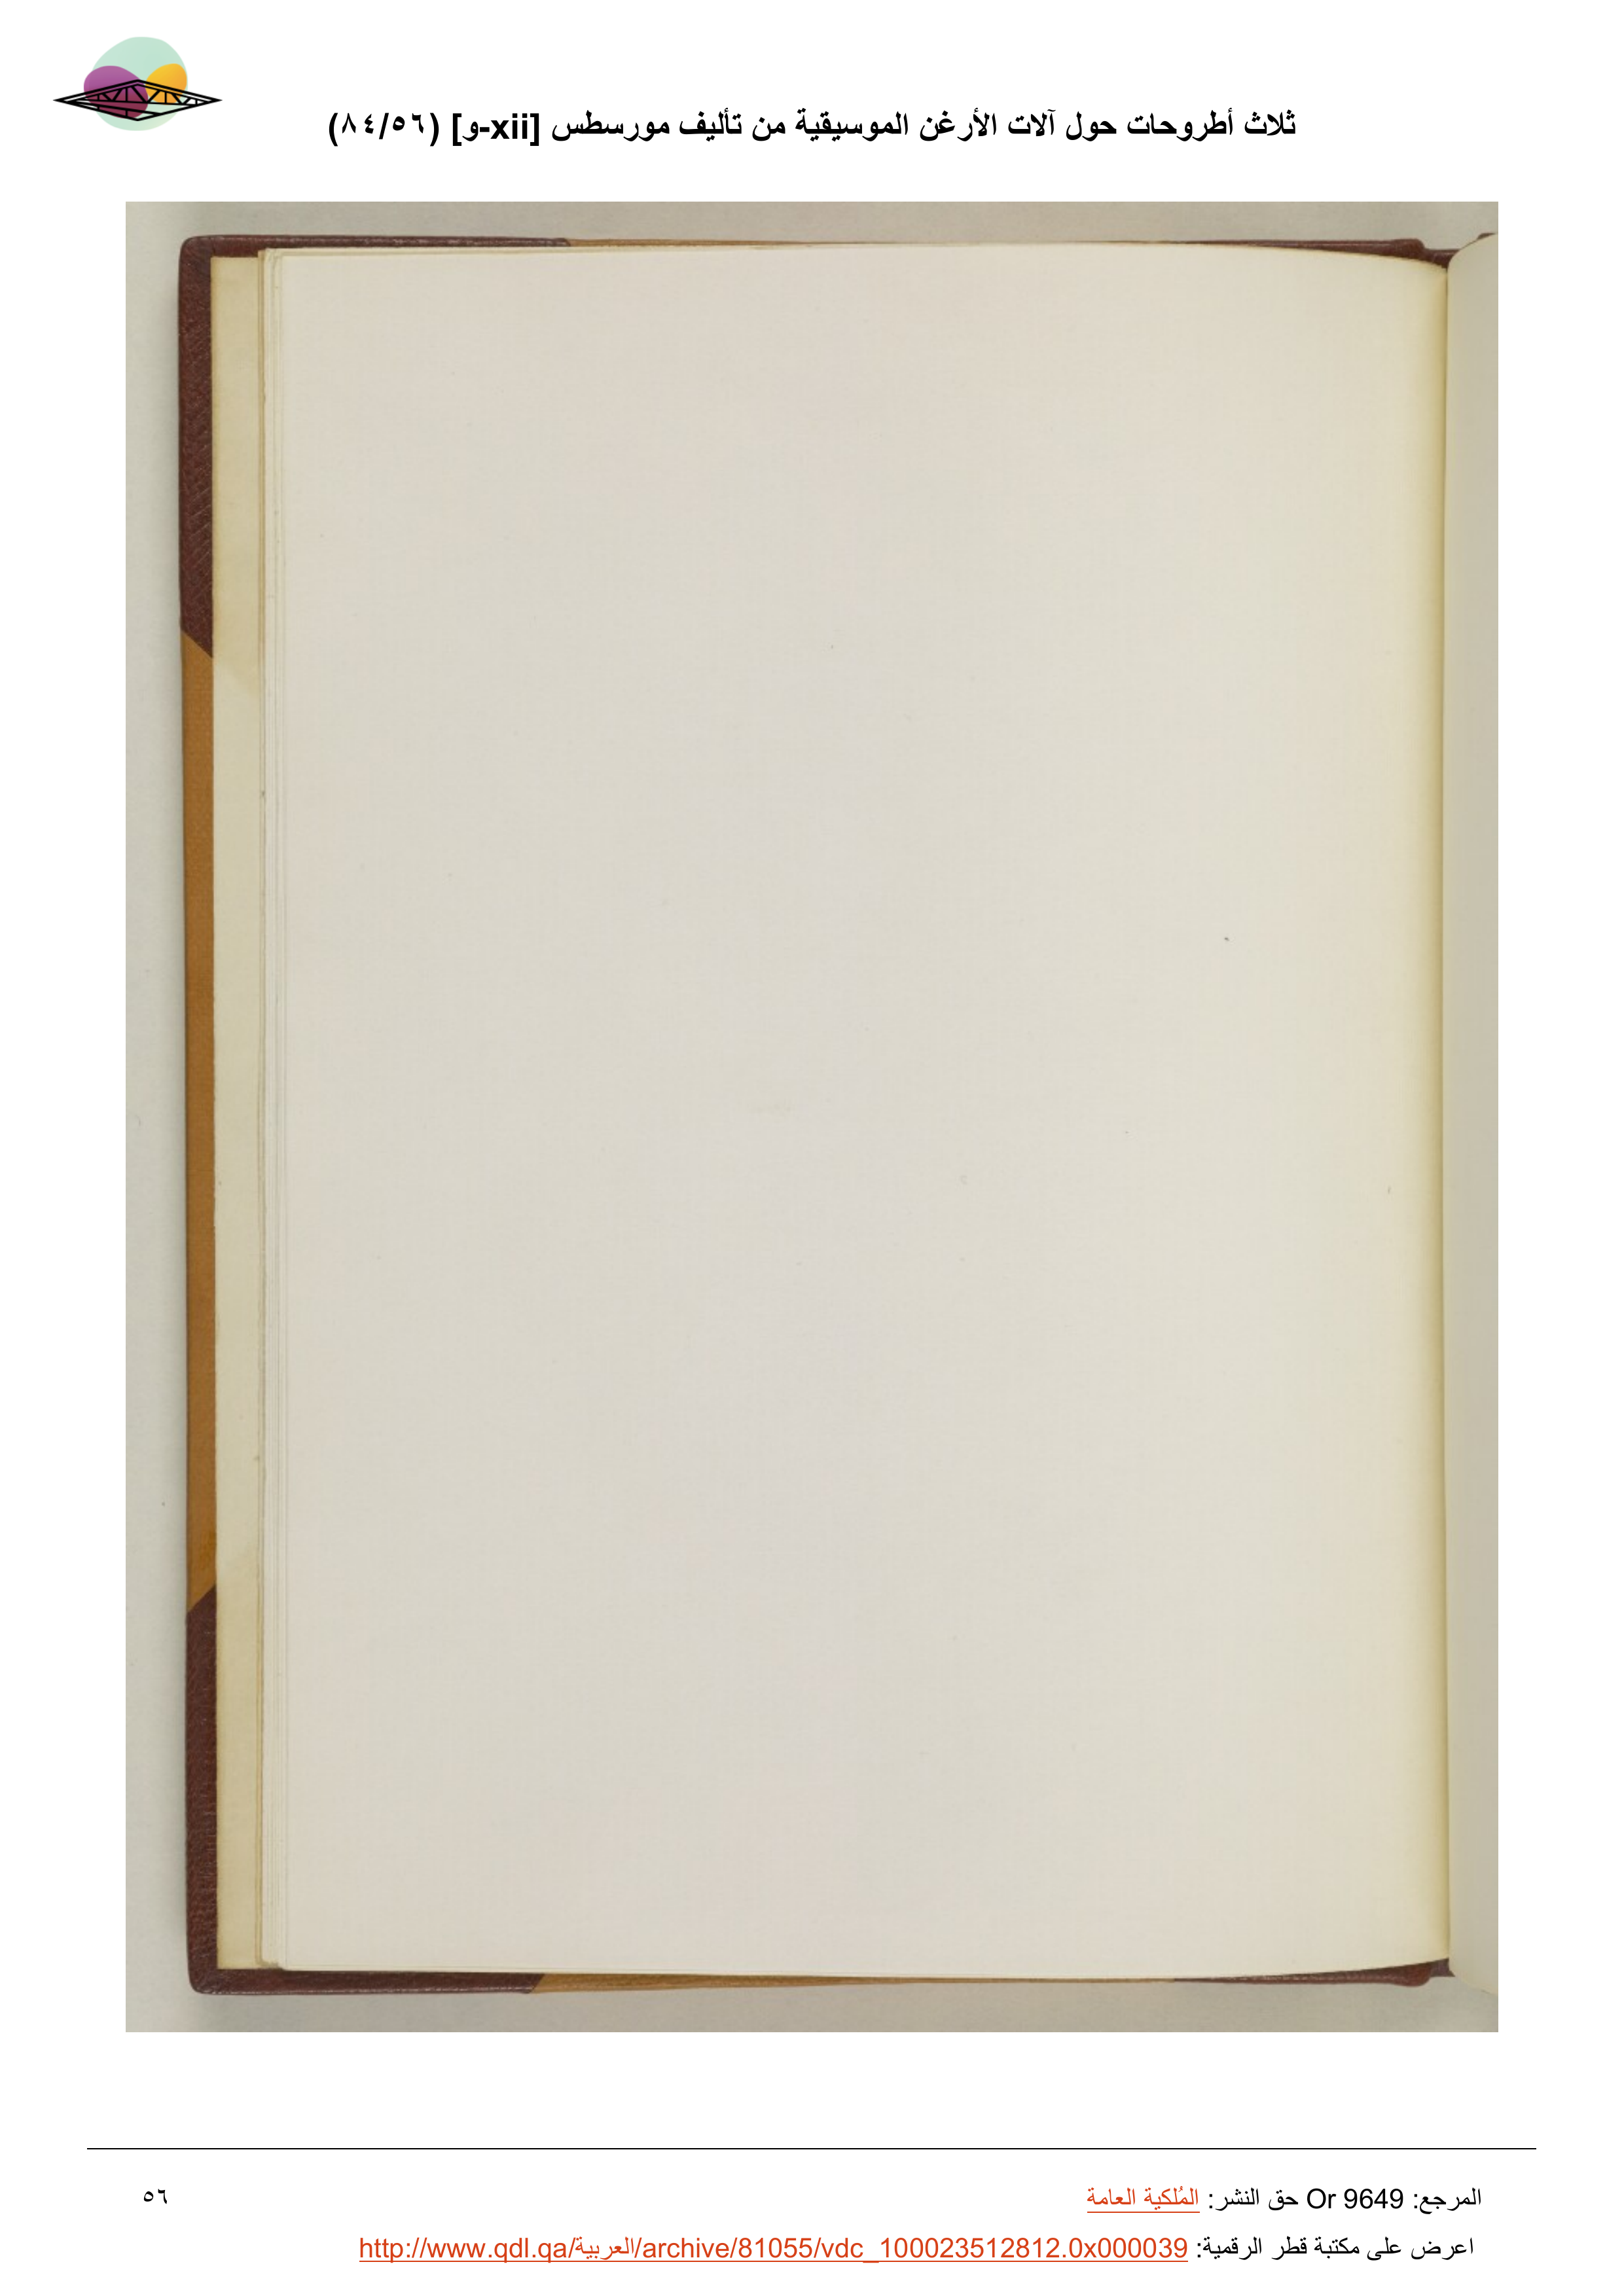 ثلاث أطروحات حول آلات الأرغن الموسيقية من تأليف مورسطس [xii-و] (٨٤/٥٦)
المرجع: Or 9649 حق النشر: المُلكية العامة
٥٦
اعرض على مكتبة قطر الرقمية: http://www.qdl.qa/العربية/archive/81055/vdc_100023512812.0x000039